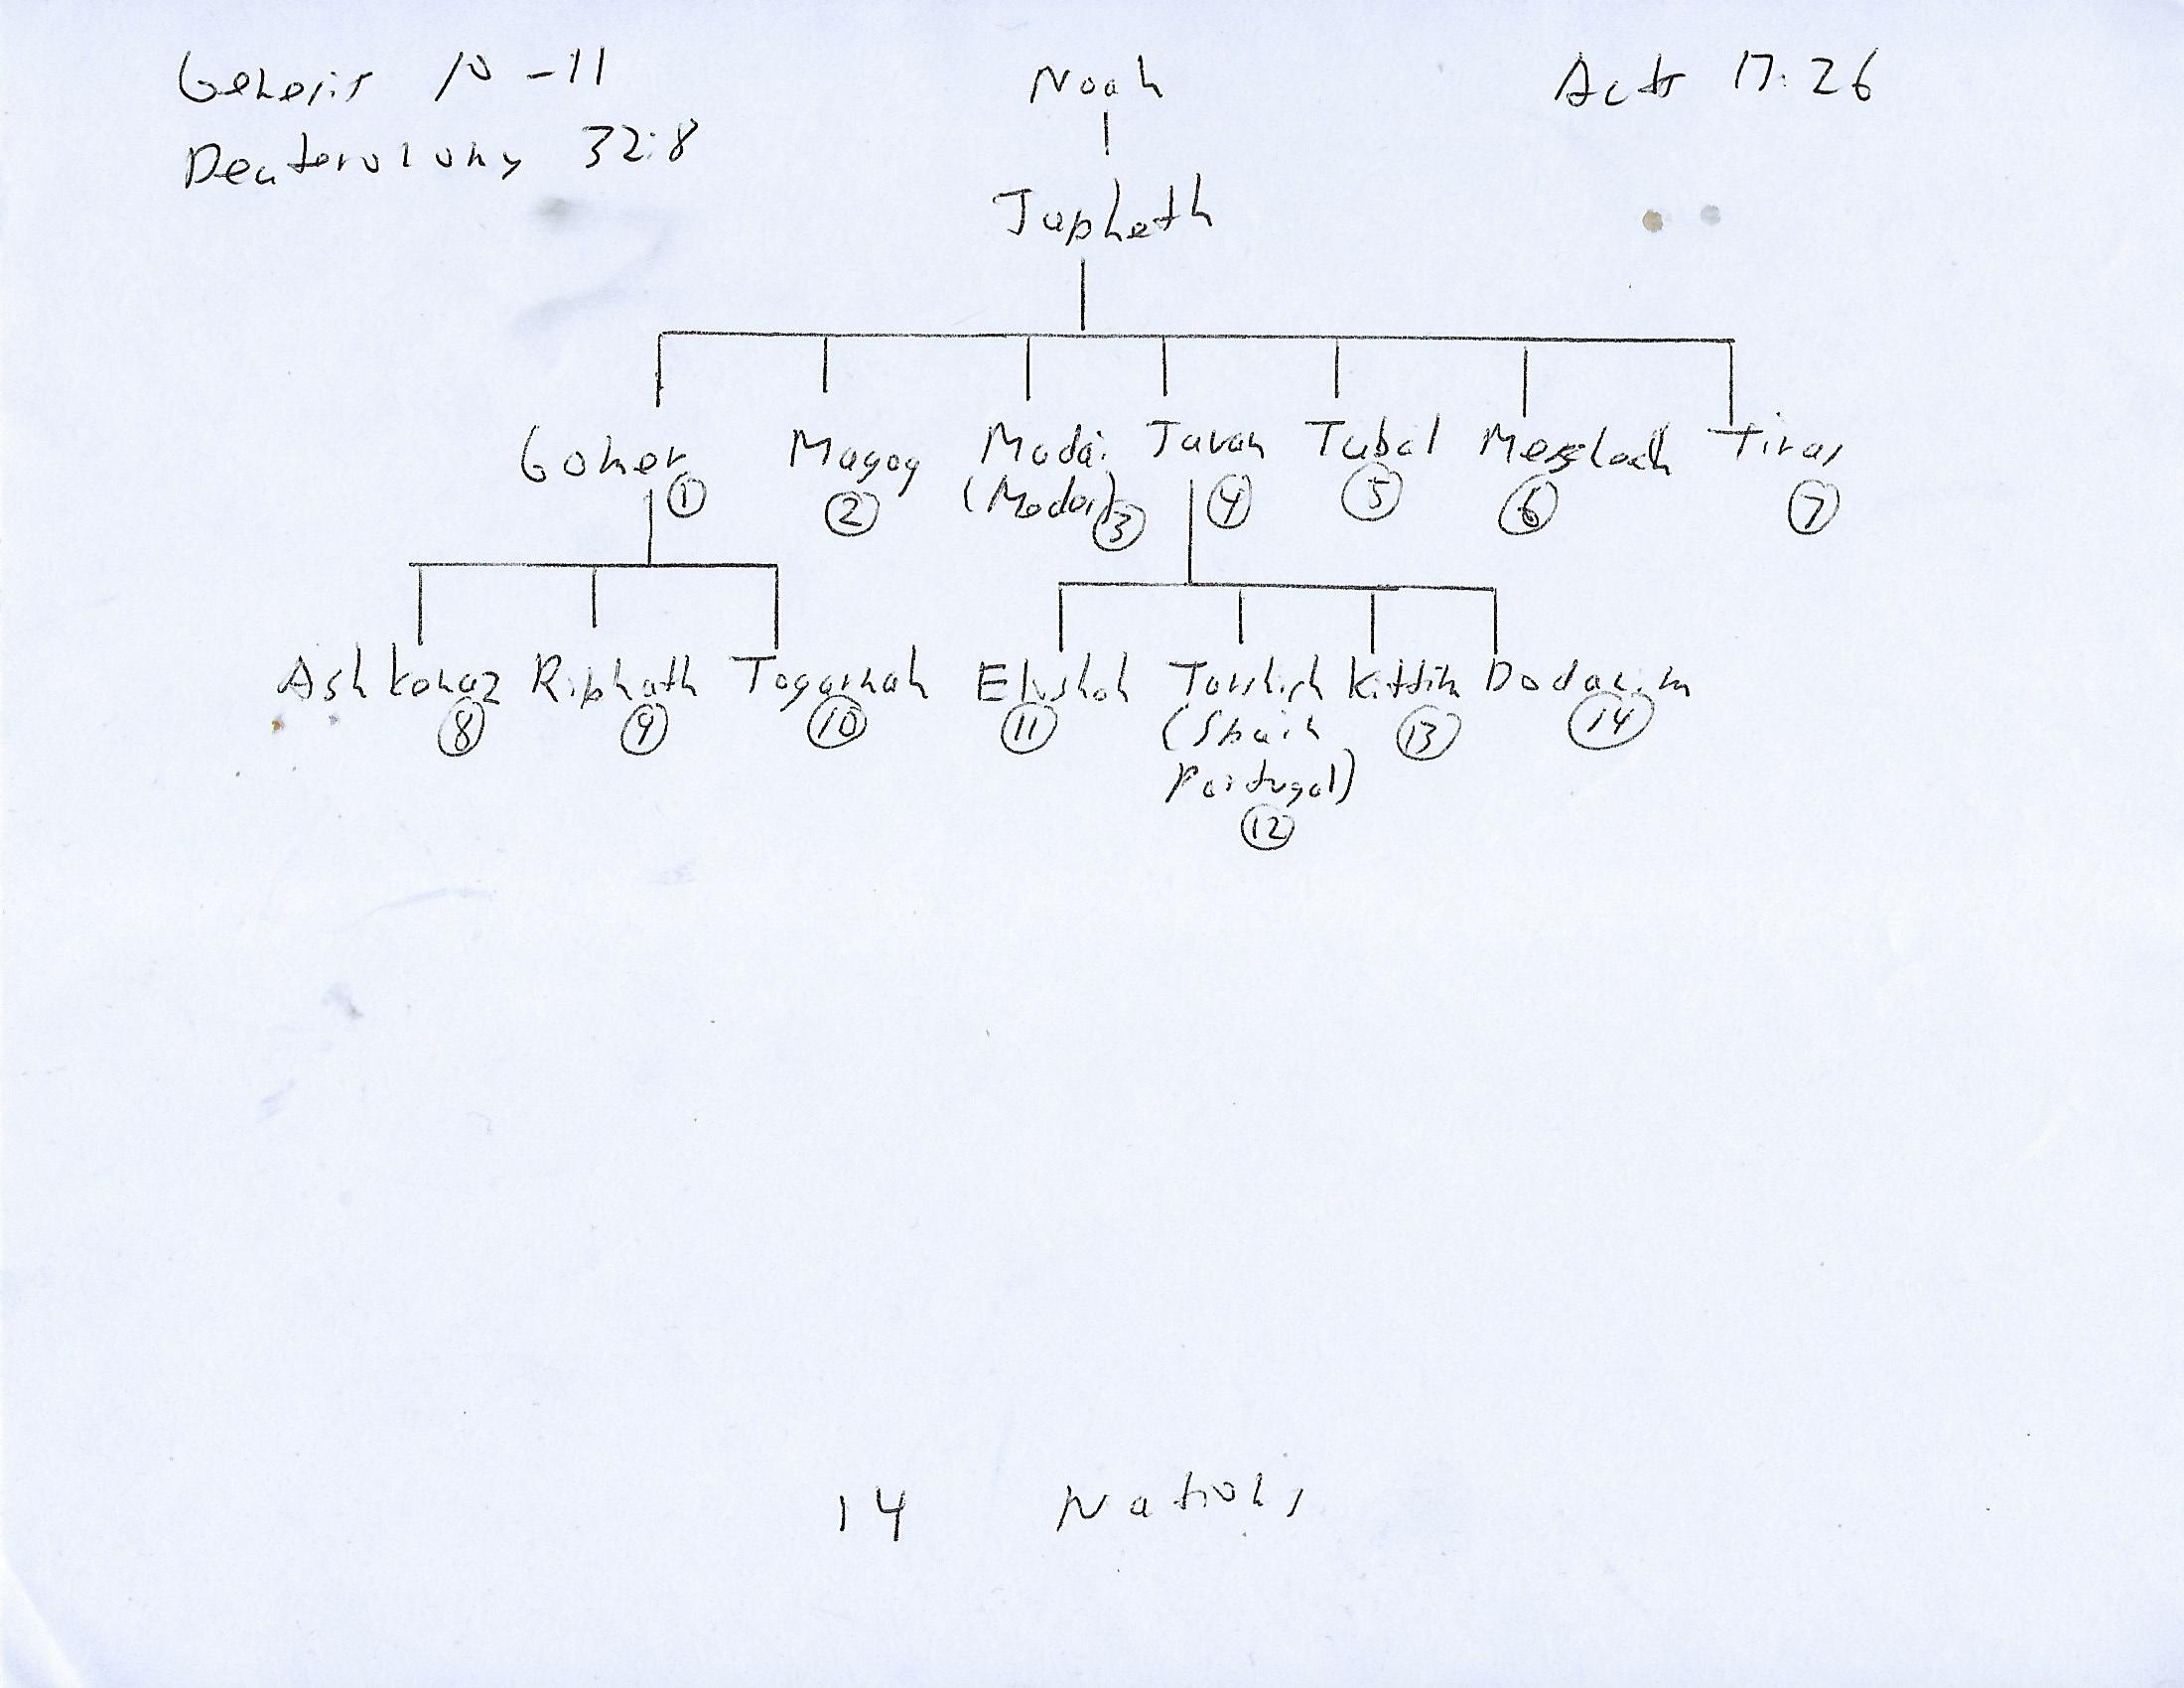 Genesis 10-11
Noah
Acts 17:26
Deuteronomy 32:8
Japheth
Gomer Magog Madai Javan Tubal Meshech Tiras
1 2 (Madai) 3 4 5 6 7
Ashkenaz Riphath Togarmah Elishah Tarshish Kittim Dodanim
8 9 10 11 (Spain 13 14
Portugal)
12
14 Nations